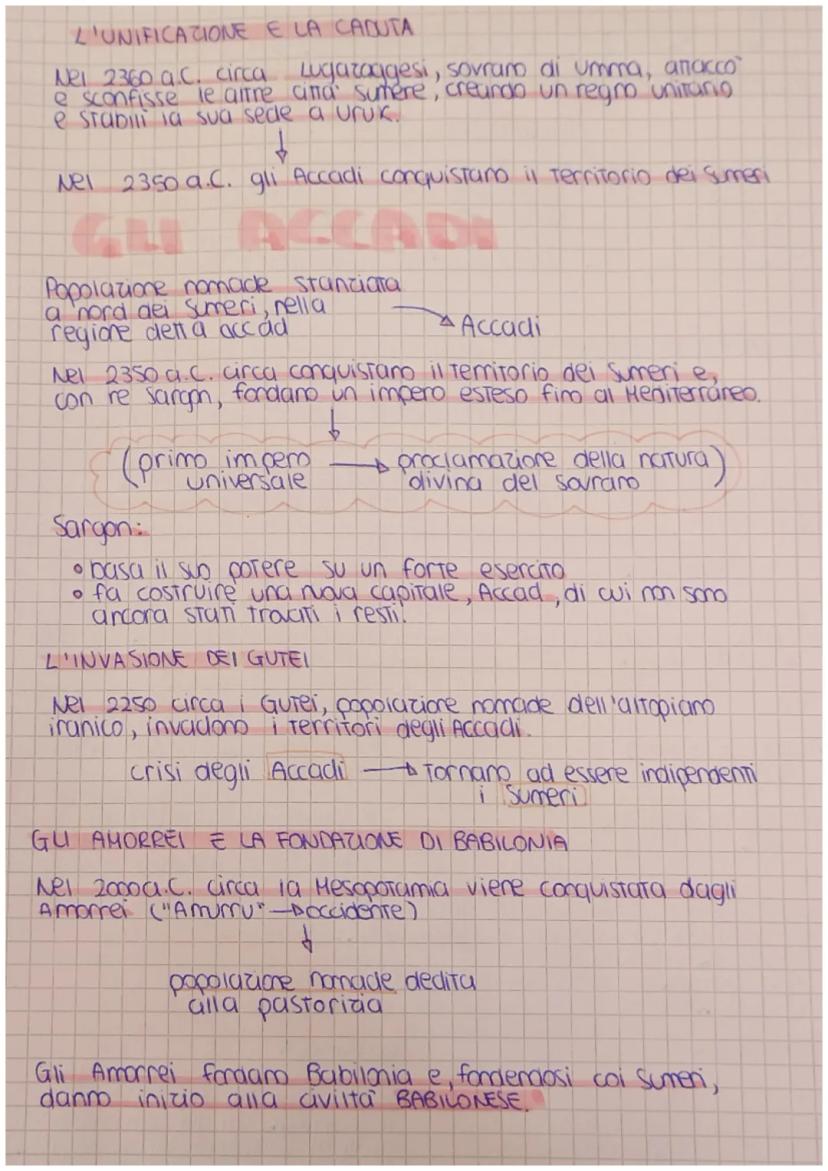 L'UNIFICAZIONE E LA CADUTA
Nel 2360 a.C. circa Lugalzaggesi, sovrano di Umma, attaccò
e sconfisse le altre città sumere, creando un regno unitario
e stabilì la sua sede a Uruk.
↓
Nel 2350 a.C. gli Accadi conquistano il territorio dei Sumeri
GLI ACCADI
Popolazione nomade stanziata
a nord dei Sumeri, nella
regione detta accad → Accadi
Nel 2350 a.C. circa conquistano il territorio dei Sumeri e,
con re Sargon, fondano un impero esteso fino al Mediterraneo.
↓
(primo impero → proclamazione della natura)
universale divina del sovrano
Sargon:
• basa il suo potere su un forte esercito
• fa costruire una nuova capitale, Accad, di cui non sono
ancora stati trovati i resti.
L'INVASIONE DEI GUTEI
Nel 2250 circa i Gutei, popolazione nomade dell'altopiano
iranico, invadono i territori degli Accadi.
crisi degli Accadi → tornano ad essere indipendenti
i Sumeri
GLI AMORREI E LA FONDAZIONE DI BABILONIA
Nel 2000 a.C. circa la Mesopotamia viene conquistata dagli
Amorrei ("Amurru" → occidente)
↓
popolazione nomade dedita
alla pastorizia
Gli Amorrei fondano Babilonia e, fondendosi coi Sumeri,
danno inizio alla civiltà BABILONESE.